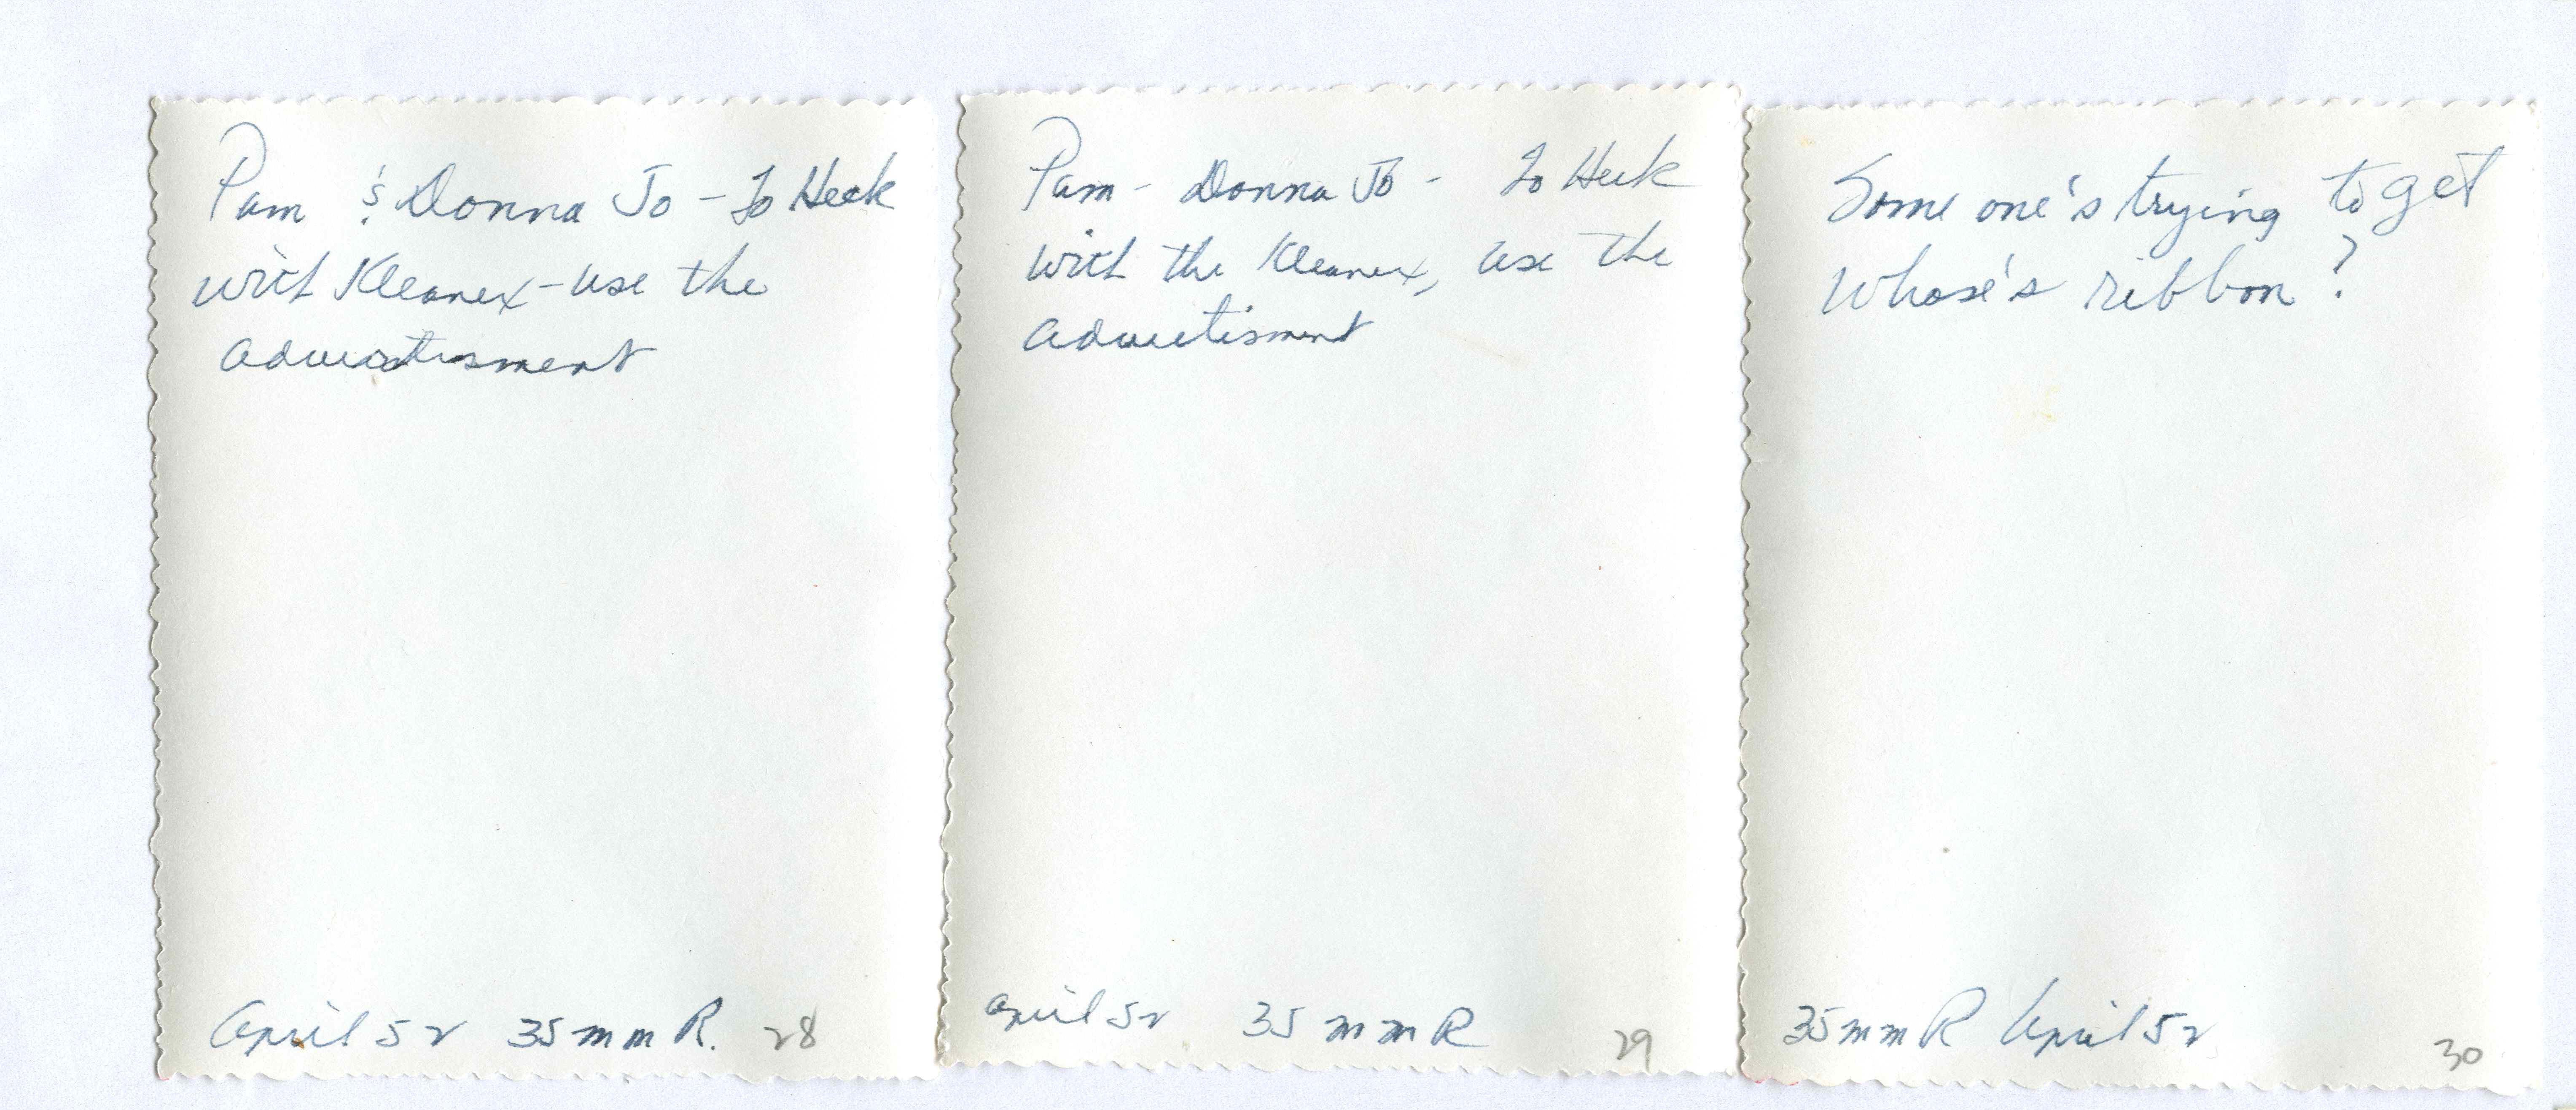 Pam & Donna Jo - To Heck
with Kleanex - use the
advertisment
April 52 35mm R. 28
Pam - Donna Jo - To Heck
with the Kleanex, use the
advertisment
April 52 35mm R 29
Some one's trying to get
Whose's ribbon?
35mm R April 52 30